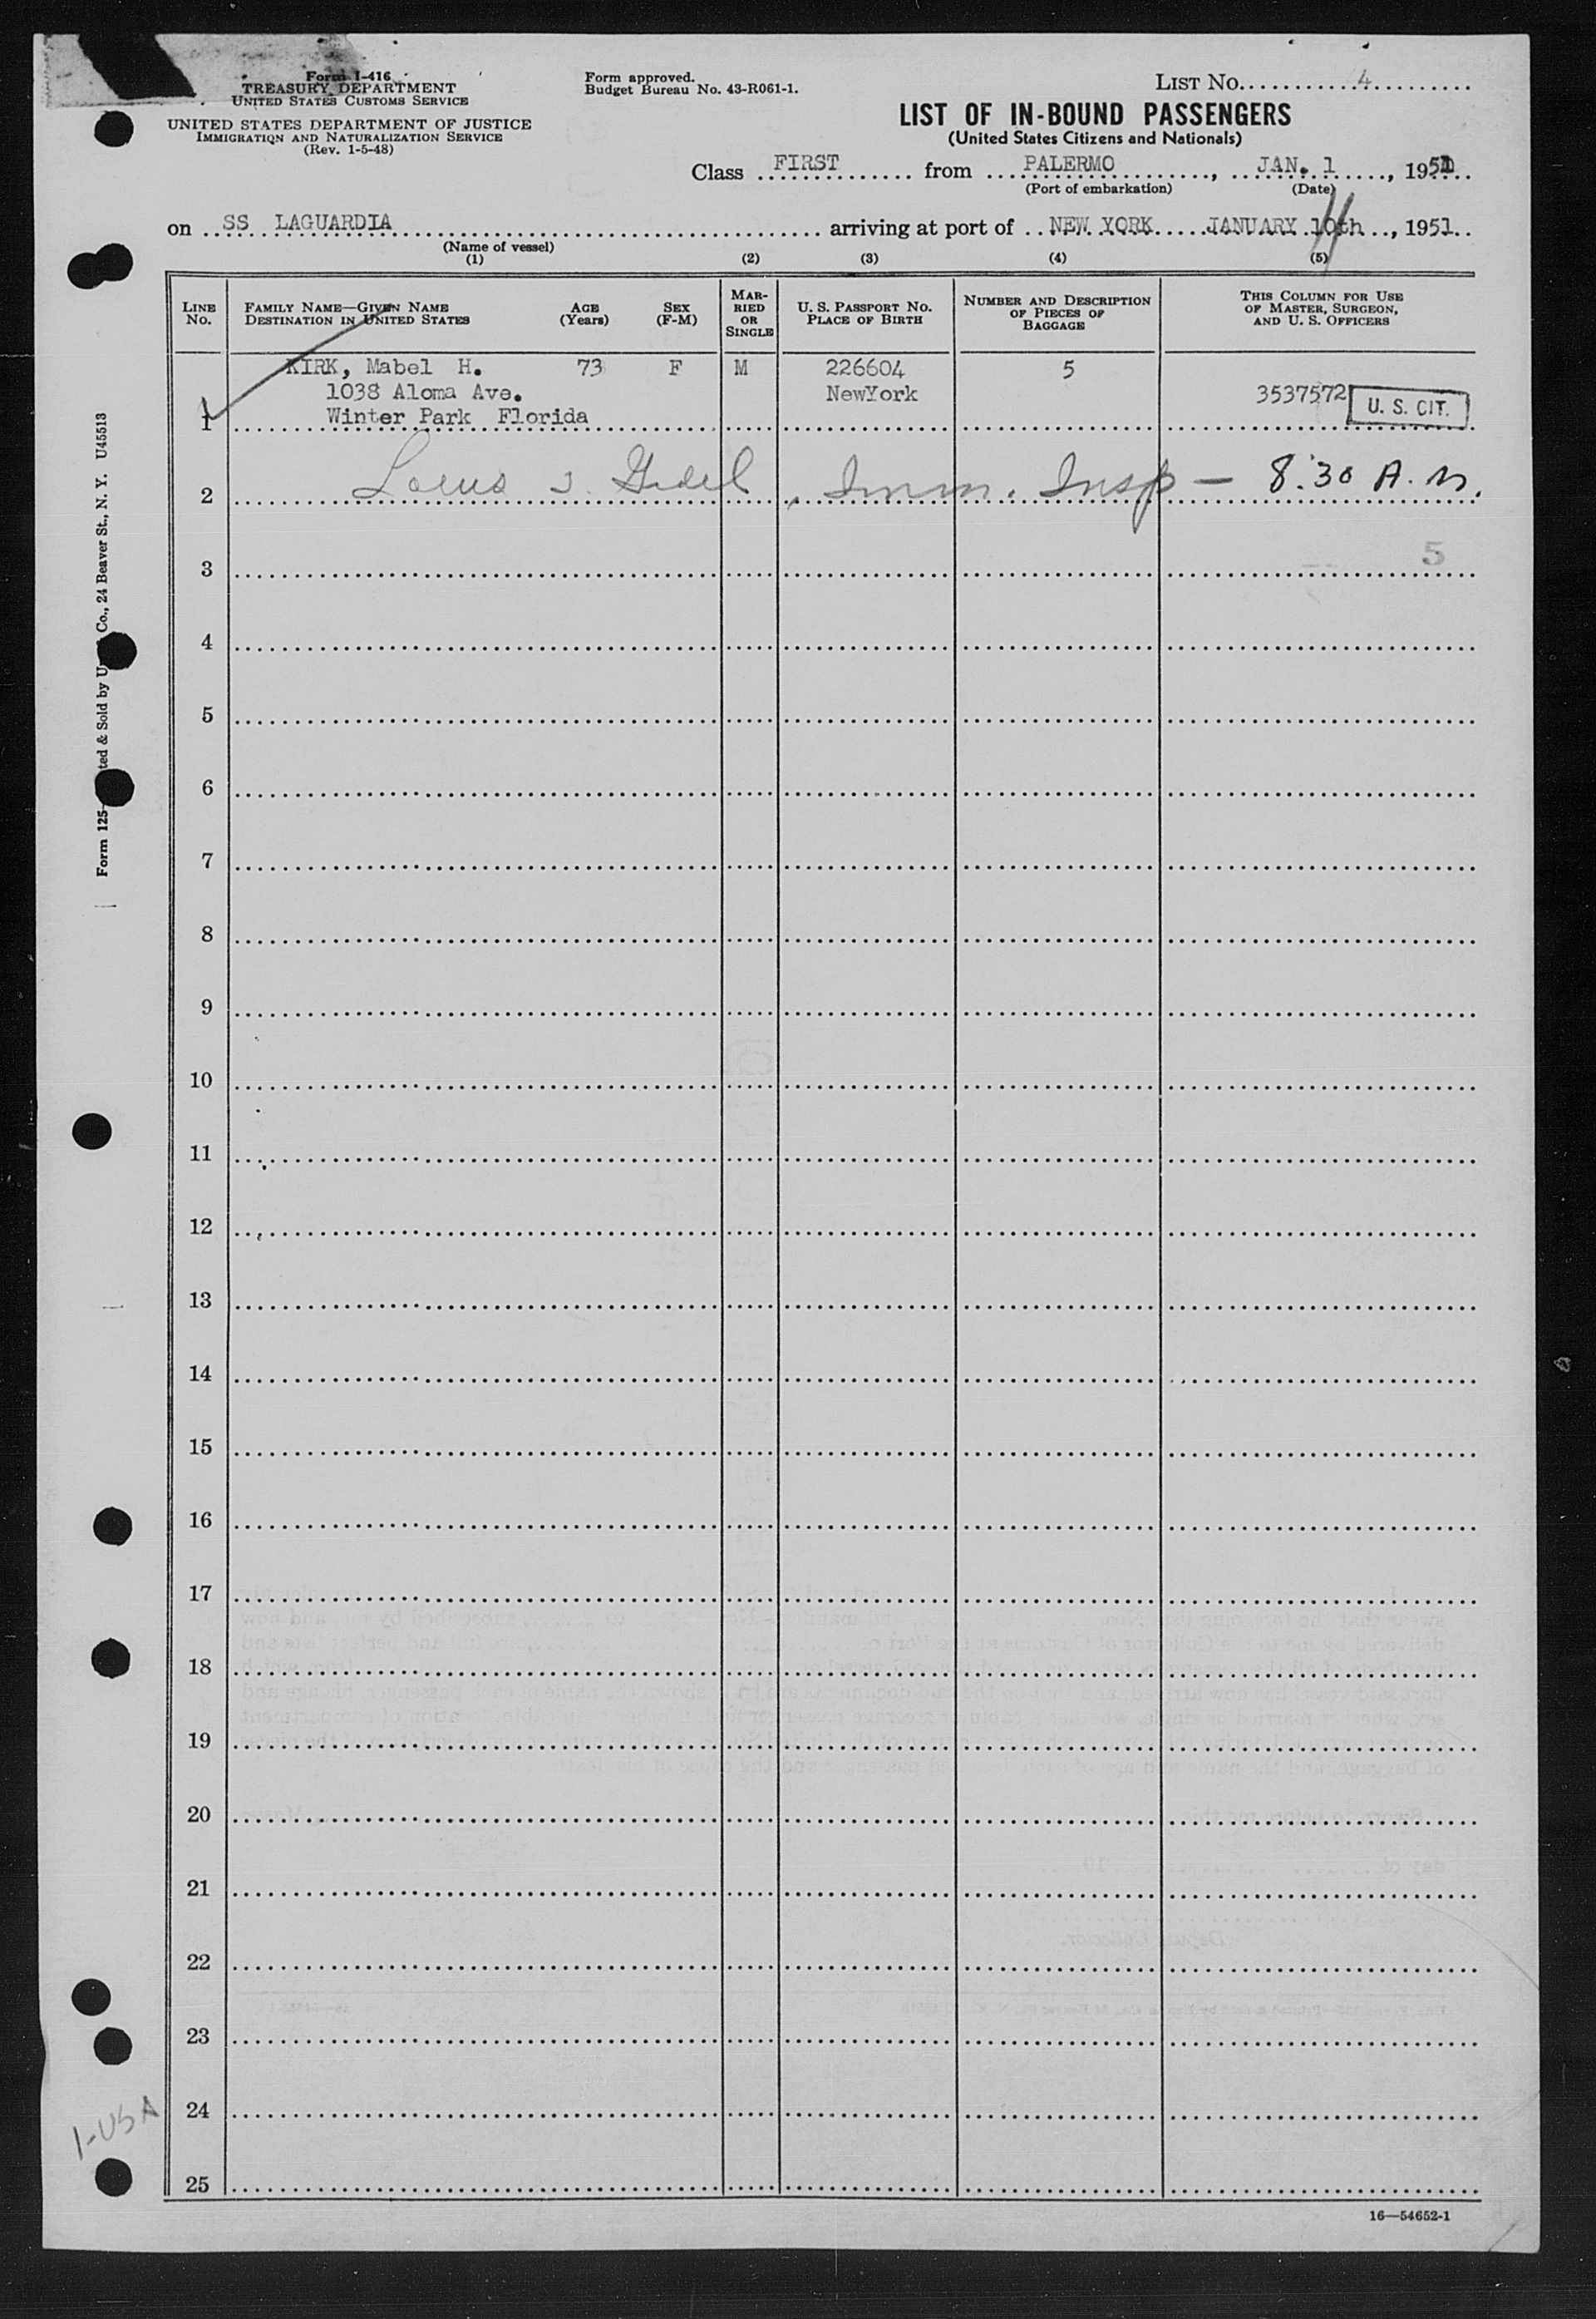 Form I-416
TREASURY DEPARTMENT
UNITED STATES CUSTOMS SERVICE
UNITED STATES DEPARTMENT OF JUSTICE
IMMIGRATION AND NATURALIZATION SERVICE
(Rev. 1-5-48)
Form approved.
Budget Bureau No. 43-R061-1.
LIST NO. 4
LIST OF IN-BOUND PASSENGERS
(United States Citizens and Nationals)
Class FIRST from PALERMO, JAN. 1, 1951
(Port of embarkation) (Date)
on SS LAGUARDIA arriving at port of NEW YORK JANUARY 10th, 1951
11
(Name of vessel)
(1) (2) (3) (4) (5)
LINE NO.
FAMILY NAME—GIVEN NAME
DESTINATION IN UNITED STATES
AGE (Years)
SEX (F-M)
MARRIED OR SINGLE
U. S. PASSPORT NO.
PLACE OF BIRTH
NUMBER AND DESCRIPTION OF PIECES OF BAGGAGE
THIS COLUMN FOR USE OF MASTER, SURGEON, AND U. S. OFFICERS
KIRK, Mabel H. 73 F M 226604 5
1038 Aloma Ave. NewYork 3537572 U. S. CIT.
1 Winter Park Florida
2 Imm. Insp — 8:30 A.M.
5
3
4
5
6
7
8
9
10
11
12
13
14
15
16
17
18
19
20
21
22
23
24
25
16—54652-1
1-USA
Form 125 ted & Sold by Co., 24 Beaver St., N. Y. U45513